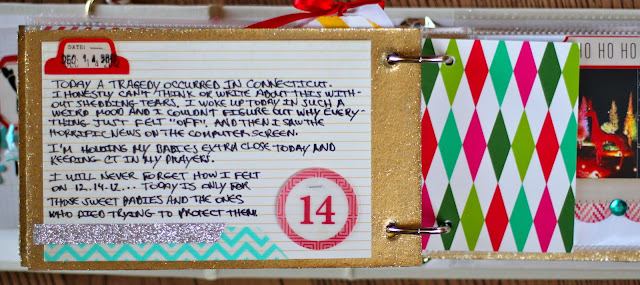 DATE:
DEC 14 2012
TODAY A TRAGEDY OCCURRED IN CONNECTICUT.
I HONESTLY CAN'T THINK OR WRITE ABOUT THIS WITH-
OUT SHEDDING TEARS. I WOKE UP TODAY IN SUCH A
WEIRD MOOD AND I COULDN'T FIGURE OUT WHY EVERY-
THING JUST FELT "OFF". AND THEN I SAW THE
HORRIFIC NEWS ON THE COMPUTER SCREEN.
I'M HOLDING MY BABIES EXTRA CLOSE TODAY AND
KEEPING CT IN MY PRAYERS.
I WILL NEVER FORGET HOW I FELT
ON 12.14.12... TODAY IS ONLY FOR
THOSE SWEET BABIES AND THE ONES
WHO DIED TRYING TO PROTECT THEM.
14
HO HO HO